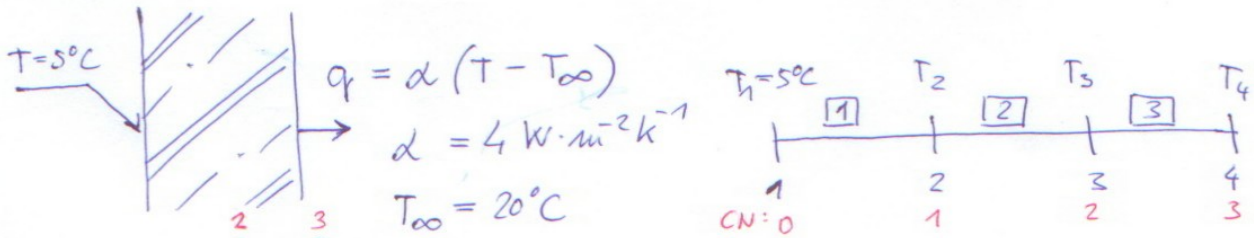 T=5°C
q = α (T - T∞)
α = 4 W·m⁻² K⁻¹
T∞ = 20°C
2 3
T₁=5°C T₂ T₃ T₄
1 2 3
1 2 3 4
CN: 0 1 2 3